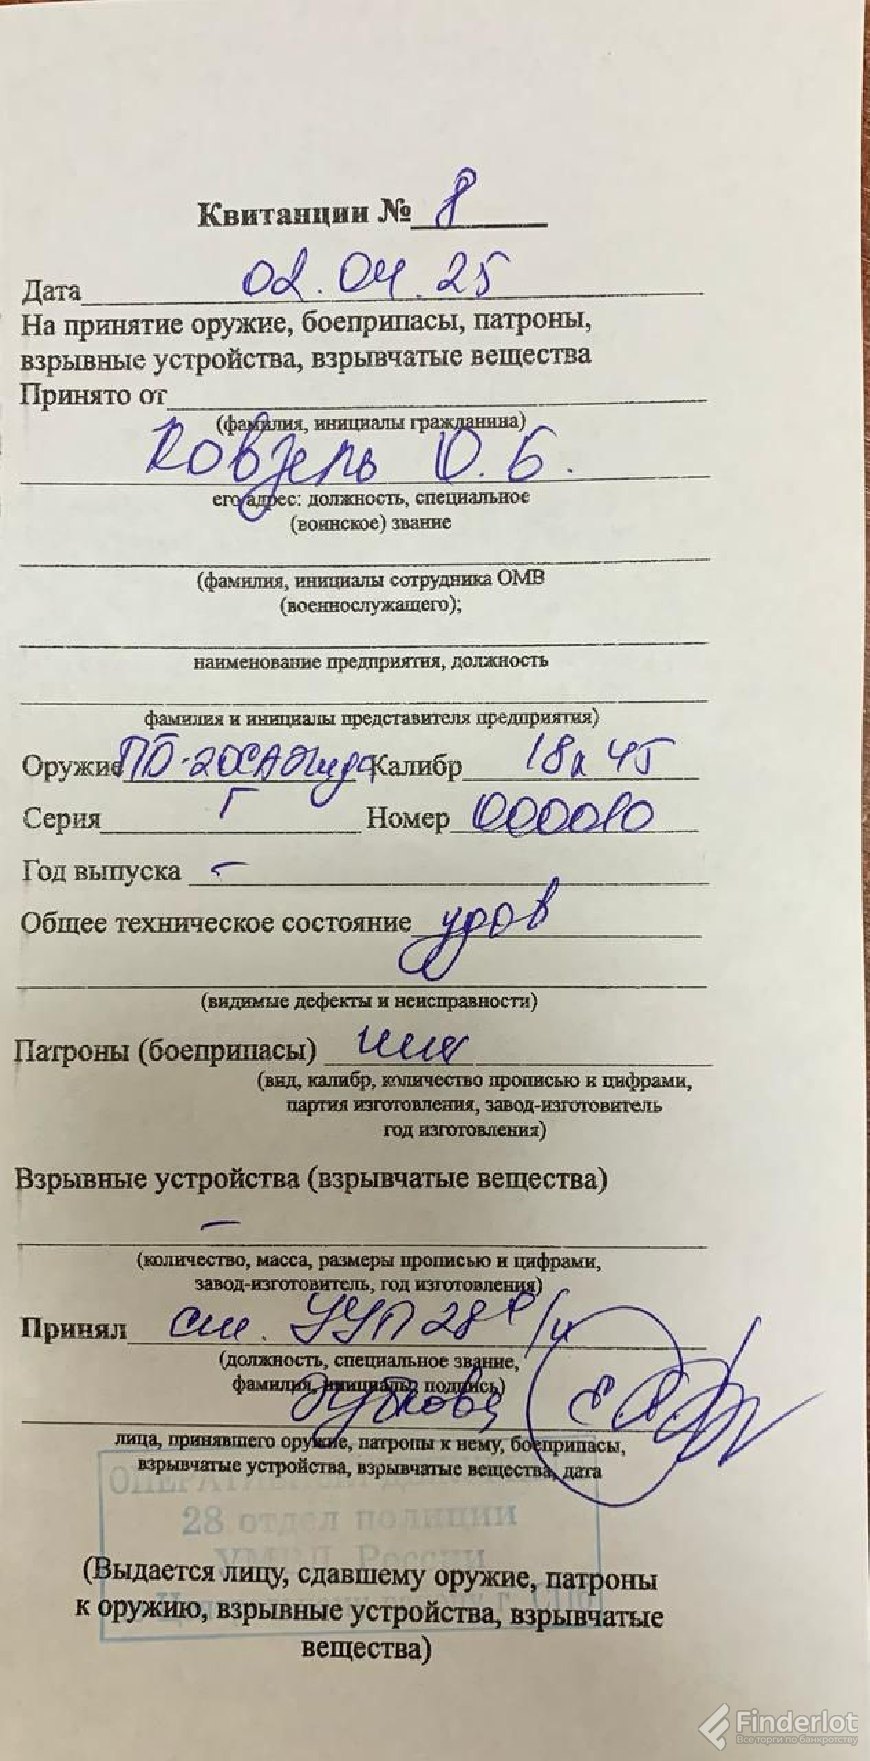 Квитанции № 8
Дата 02.04.25
На принятие оружие, боеприпасы, патроны,
взрывные устройства, взрывчатые вещества
Принято от
(фамилия, инициалы гражданина)
Ковзель О.Б.
его адрес: должность, специальное
(воинское) звание
(фамилия, инициалы сотрудника ОМВ
(военнослужащего);
наименование предприятия, должность
фамилия и инициалы представителя предприятия)
Оружие Калибр 18х45
Серия Г Номер 000010
Год выпуска -
Общее техническое состояние удов
(видимые дефекты и неисправности)
Патроны (боеприпасы)
(вид, калибр, количество прописью и цифрами,
партия изготовления, завод-изготовитель
год изготовления)
Взрывные устройства (взрывчатые вещества)
-
(количество, масса, размеры прописью и цифрами,
завод-изготовитель, год изготовления)
Принял ст. УУП 28 о/п
(должность, специальное звание,
фамилия, инициалы, подпись)
лица, принявшего оружие, патроны к нему, боеприпасы,
взрывчатые устройства, взрывчатые вещества, дата
28 отдел полиции
УМВД России
(Выдается лицу, сдавшему оружие, патроны
к оружию, взрывные устройства, взрывчатые
вещества)
Finderlot
Все торги по банкротству